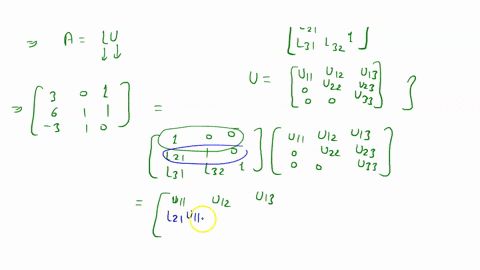 L21
L31 L32 1
⇒ A = LU
↓↓
U = [ U11 U12 U13
0 U22 U23
0 0 U33 ] }
⇒ [ 3 0 1
6 1 1
-3 1 0 ] =
[ 1 0 0
L21 1 0
L31 L32 1 ] [ U11 U12 U13
0 U22 U23
0 0 U33 ]
= [ U11 U12 U13
L21 U11.